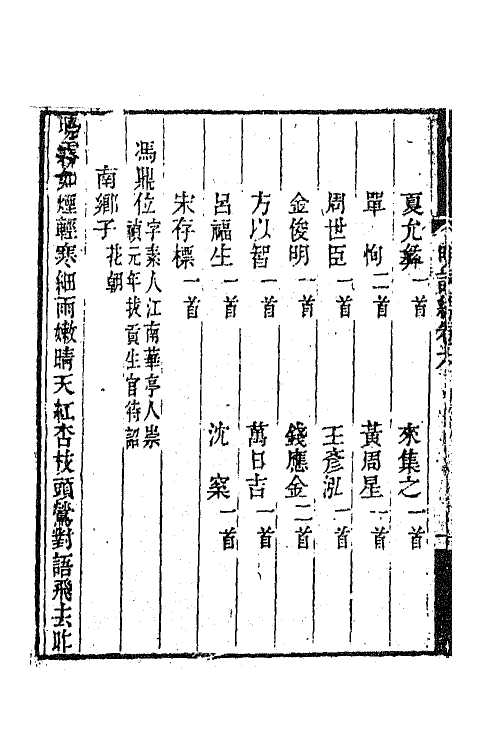 夏允彝一首　來集之一首
單恂二首　黃周星一首
周世臣一首　王彥泓一首
金俊明一首　錢應金二首
方以智一首　萬日吉一首
呂福生一首　沈㮣一首
宋存標一首
馮鼎位字素人江南華亭人崇禎元年拔貢生官待詔
南鄉子花朝
如煙輕寒細雨嫩晴天紅杏枝頭鶯對語飛去昨
明詞綜卷六